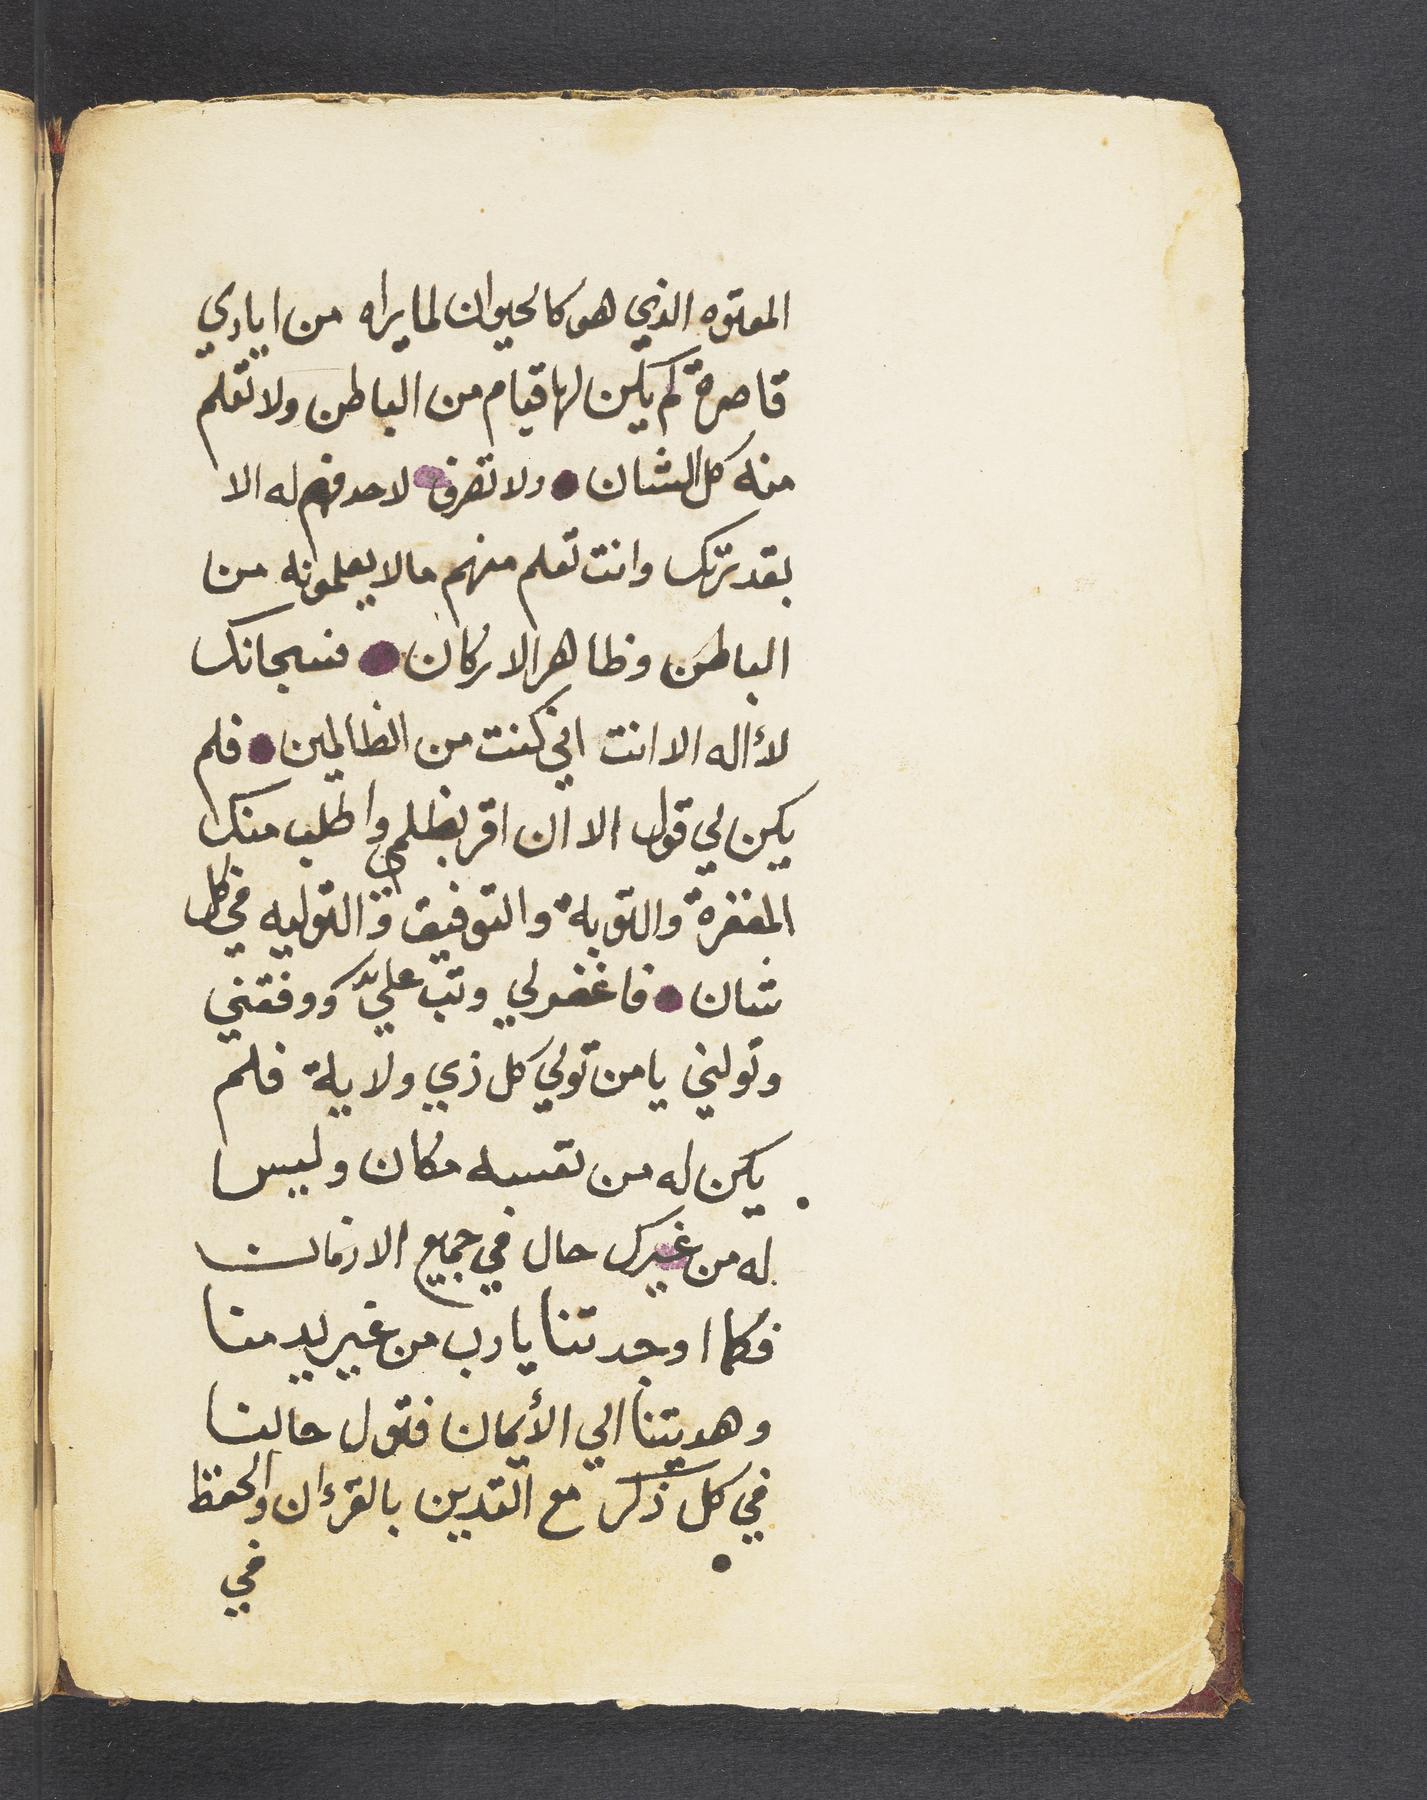 المعتوه الذي هو كالحيوان لما يراه من ايادي
قاصرة لم يكن لها قيام من الباطن ولا تعلم
منه كل الشان ● ولا تصرف لاحد فهم له الا
بقدرتك وانت تعلم منهم ما لا يعلمونه من
الباطن وظاهر الاركان ● فسبحانك
لا اله الا انت اني كنت من الظالمين ● فلم
يكن لي قول الا ان اقر بظلمي واطلب منك
المغفرة والتوبة والتوفيق والتوليه في كل
شان ● فاغفر لي وتب عليّ ووفقني
وتولني يا من تولي كل ذي ولاية فلم
يكن له من نفسه مكان وليس
له من غيرك حال في جميع الازمان
فكما اوجدتنا يا رب من غير يد منا
وهديتنا الي الأيمان فتول حالنا
في كل ذكر مع التدين بالقرءان والحفظ
في